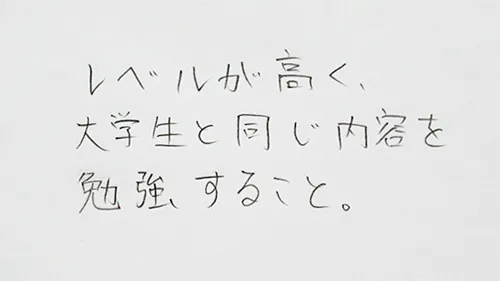 レベルが高く、
大学生と同じ内容を
勉強、すること。